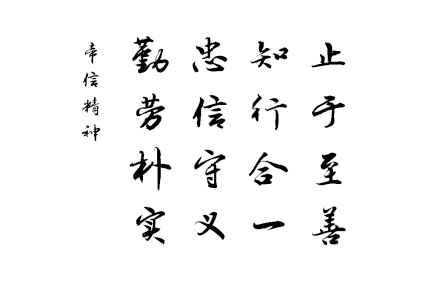 止于至善
知行合一
忠信守义
勤劳朴实
辛信精神